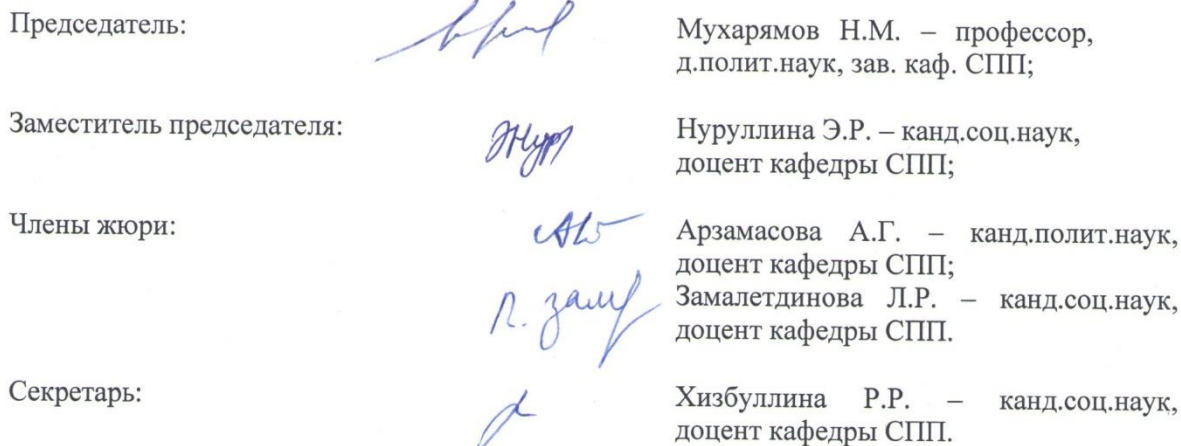 Председатель:
Мухарямов Н.М. – профессор,
д.полит.наук, зав. каф. СПП;
Заместитель председателя:
Нуруллина Э.Р. – канд.соц.наук,
доцент кафедры СПП;
Члены жюри:
Арзамасова А.Г. – канд.полит.наук,
доцент кафедры СПП;
Замалетдинова Л.Р. – канд.соц.наук,
доцент кафедры СПП.
Секретарь:
Хизбуллина Р.Р. – канд.соц.наук,
доцент кафедры СПП.